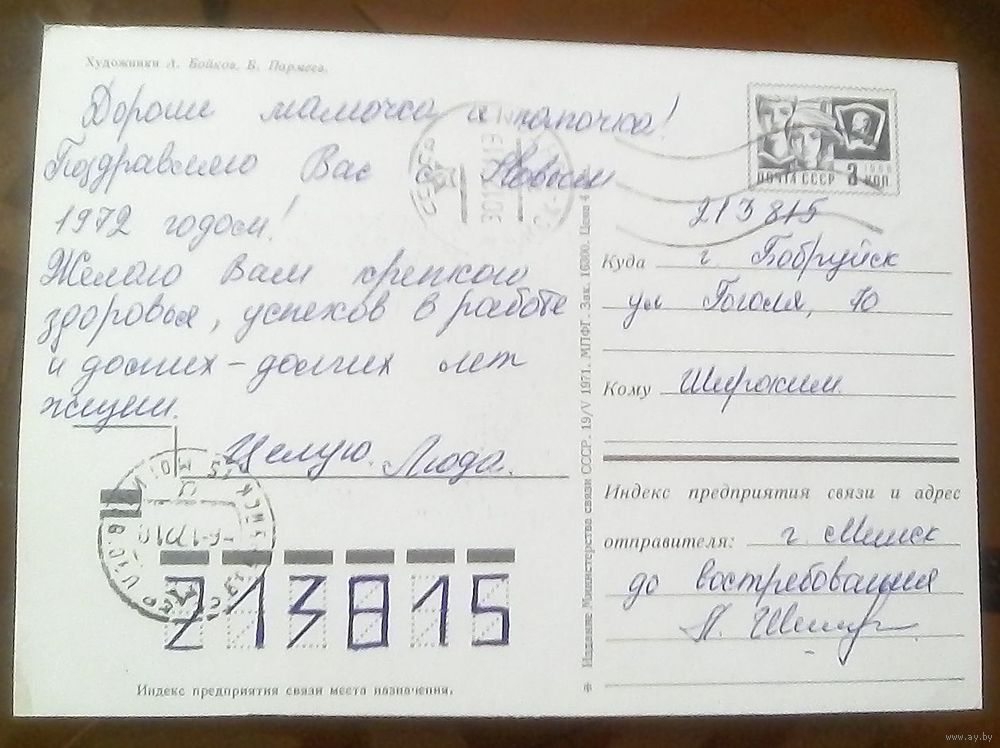 Художники А. Бойков, Б. Пармеев.
Дорогие мамочка и папочка!
Поздравляю Вас с Новым
1972 годом!
Желаю Вам крепкого
здоровья, успехов в работе
и долгих-долгих лет
жизни.
Целую. Люда.
213815
Индекс предприятия связи места назначения.
Издание Министерства связи СССР. 19/V 1971. МПФГ. Зак. 16300. Цена 4
ПОЧТА СССР 3 КОП
1966
213815
Куда г. Бобруйск
ул Гоголя, 70
Кому Широким
Индекс предприятия связи и адрес
отправителя: г. Минск
до востребования
www.ay.by